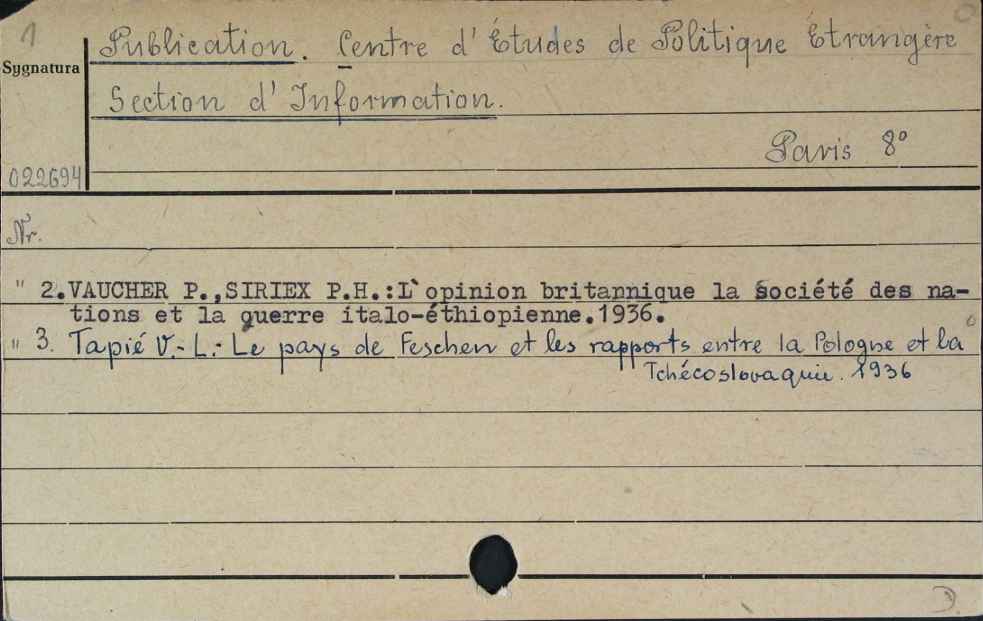 1
Publication. Centre d'Études de Politique Étrangère
Sygnatura
Section d'Information.
Paris 8°
022694
Nr.
" 2. VAUCHER P., SIRIEX P.H.: L`opinion britannique la société des na-
tions et la guerre italo-éthiopienne. 1936.
" 3. Tapié V.-L.- Le pays de Feschen et les rapports entre la Pologne et la
Tchécoslovaquie. 1936